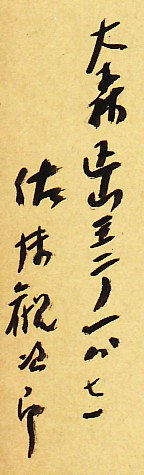 大森山王二ノ一八七一
佐藤観次郎